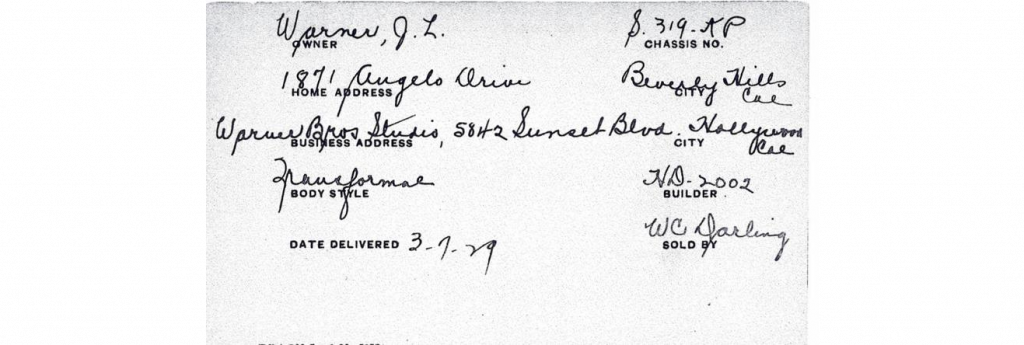 Warner, J. L. S. 319-KP
OWNER CHASSIS NO.
1871 Angelo Drive Beverly Hills
HOME ADDRESS CITY Cal
Warner Bros. Studio, 5842 Sunset Blvd. Hollywood
BUSINESS ADDRESS CITY Cal
Transformal HD-2002
BODY STYLE BUILDER
WC Darling
DATE DELIVERED 3-7-29 SOLD BY